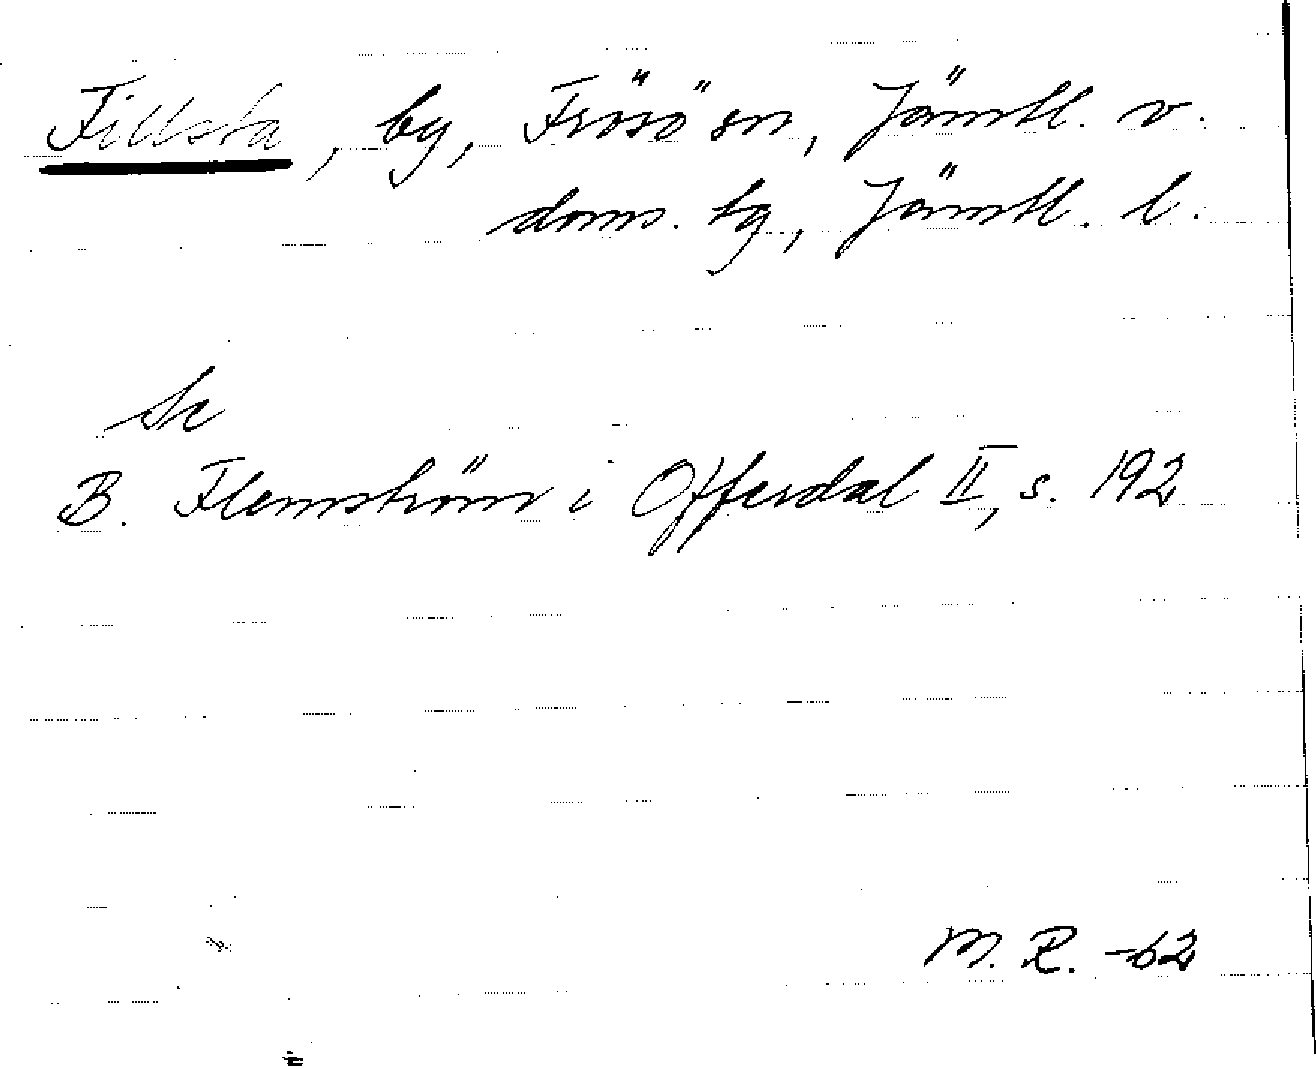 Fillsta, by, Frösö sn, Jämtl. v.
doms. hg, Jämtl. l.
Se
B. Flemström i Offerdal II, s. 192
M. R. -62